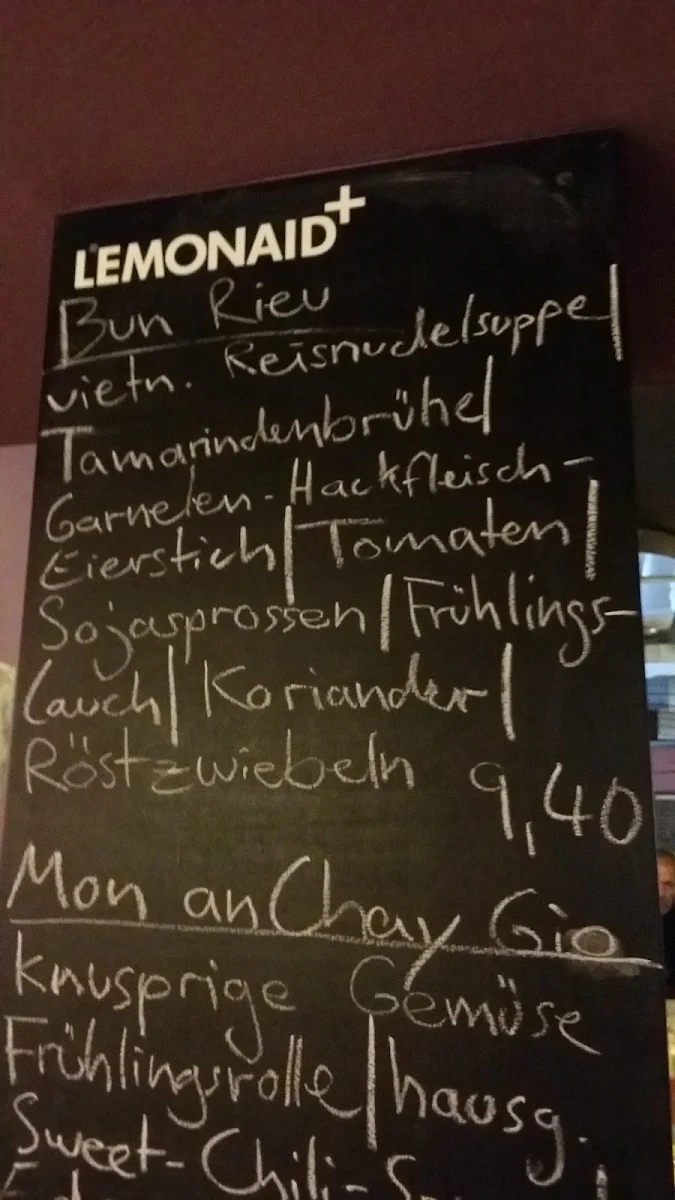 LEMONAID+
Bun Rieu
vietn. Reisnudelsuppe|
Tamarindenbrühe|
Garnelen-Hackfleisch-
Eierstich|Tomaten|
Sojasprossen|Frühlings-
lauch|Koriander|
Röstzwiebeln 9,40
Mon an Chay Gio
knusprige Gemüse
Frühlingsrolle|hausg.
Sweet-Chili-